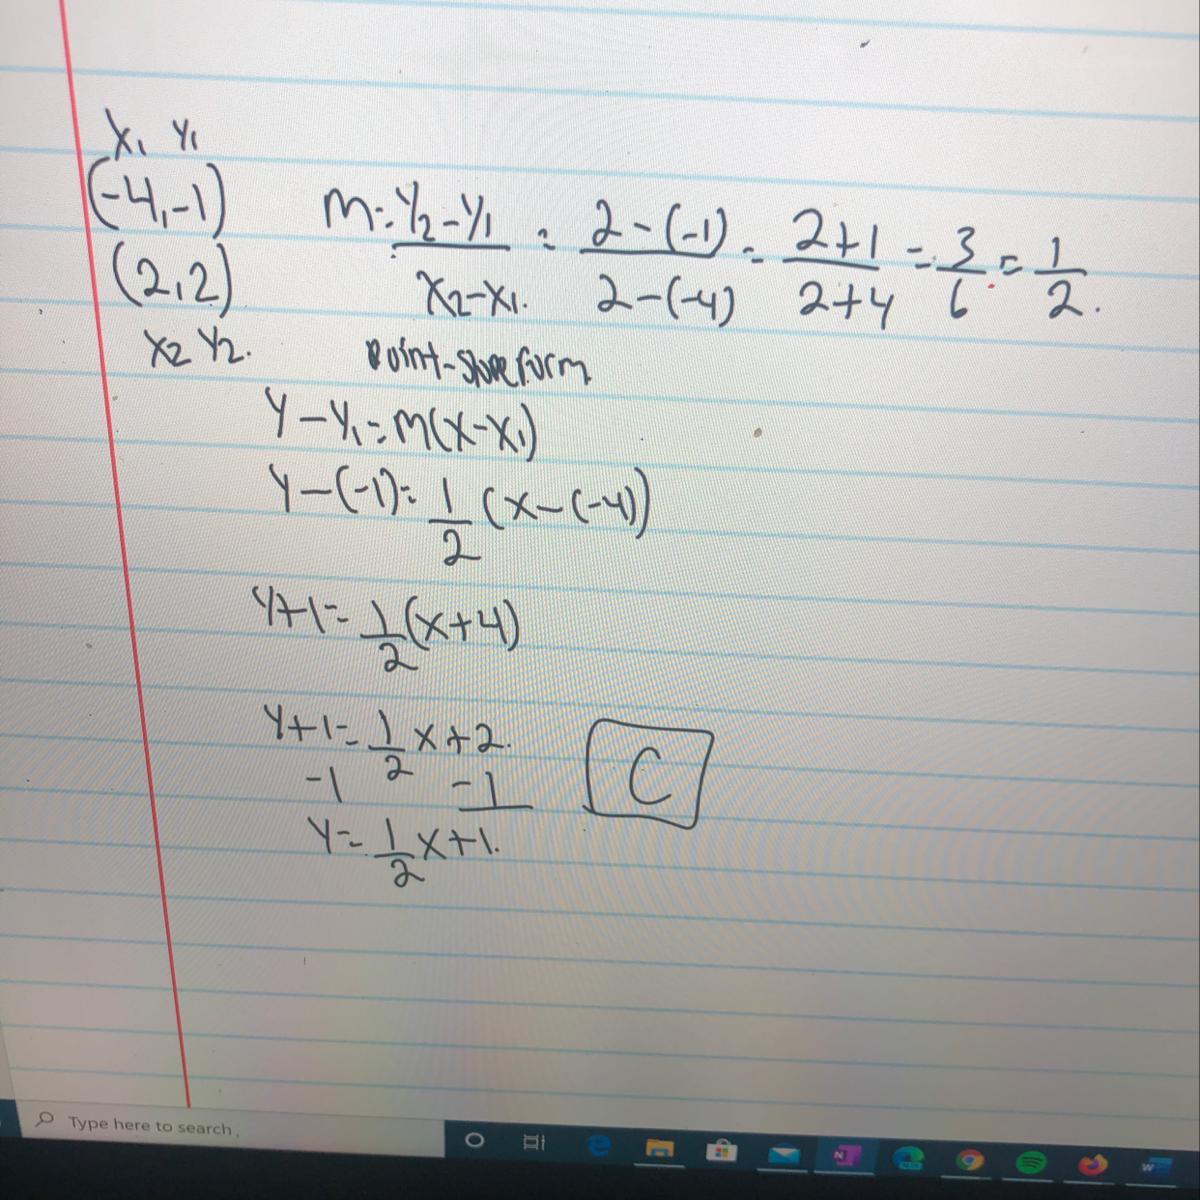 X₁ Y₁
(-4,-1)
(2,2)
X₂ Y₂.
m = Y₂-Y₁ / X₂-X₁. = 2-(-1) / 2-(-4) = 2+1 / 2+4 = 3/6 = 1/2.
Point-slope form
Y-Y₁=m(x-X₁)
Y-(-1)=1/2(x-(-4))
Y+1=1/2(x+4)
Y+1=1/2x+2.
-1 -1
Y=1/2x+1.
C
Type here to search